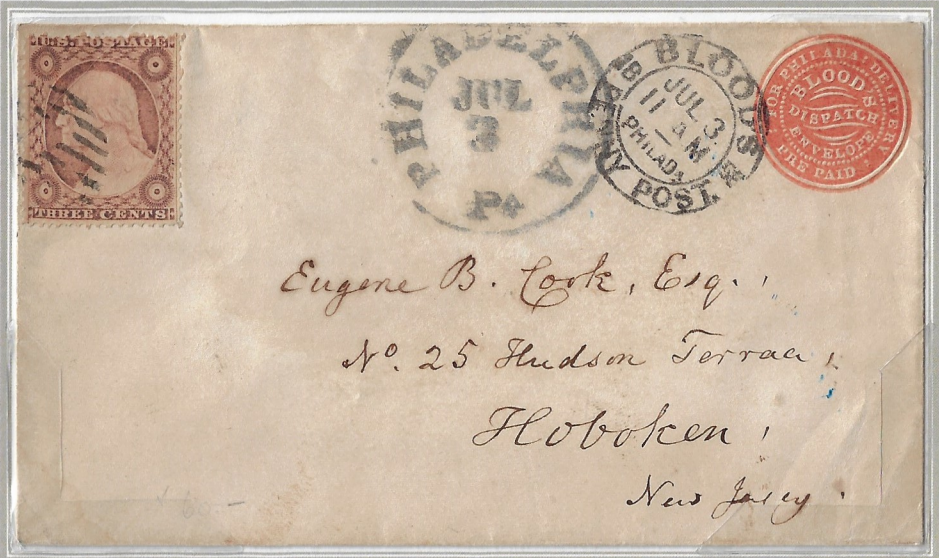 U.S. POSTAGE
THREE CENTS
PHILADELPHIA
JUL
3
Pa
BLOOD'S
PENNY POST
JUL 3
11 AM
PHILADA
FOR PHILADA: DELIVERY
BLOOD'S
DISPATCH
ENVELOPE
PRE PAID
Eugene B. Cook, Esq.,
No. 25 Hudson Terrace,
Hoboken,
New Jersey.